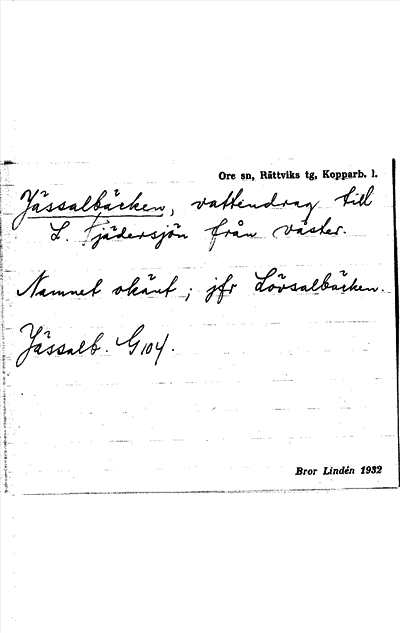 Ore sn, Rättviks tg, Kopparb. l.
Jässalbäcken, vattendrag till
L. Tjädersjön från väster.
Namnet okänt; jfr Lövsalbäcken.
Jässalb. G104.
Bror Lindén 1932